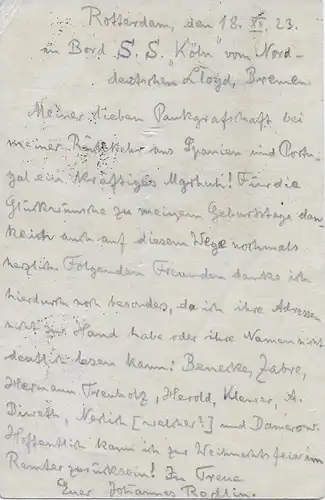 Rotterdam, den 18. XI. 23.
an Bord S. S. "Köln" vom Nord-
deutschen Lloyd, Bremen
Meiner lieben Pankgrafschaft bei
meiner Rückkehr aus Spanien und Portu-
gal ein kräftiges! Für die
Glückwünsche zu meinem Geburtstage dan-
ke ich auch auf diesem Wege nochmals
herzlich. Folgenden Freunden danke ich
hierdurch noch besonders, da ich ihre Adressen
nicht zur Hand habe oder ihre Namen nicht
deutlich lesen kann: Benecke, Zabre,
Hermann Trenholz, Herold, Klenser, A.
Diweth, Nerlich [welcher?] und Damerow.
Hoffentlich kann ich zur Weihnachtsfeier im
Remter zurücksein! In Treue
Euer Johannes